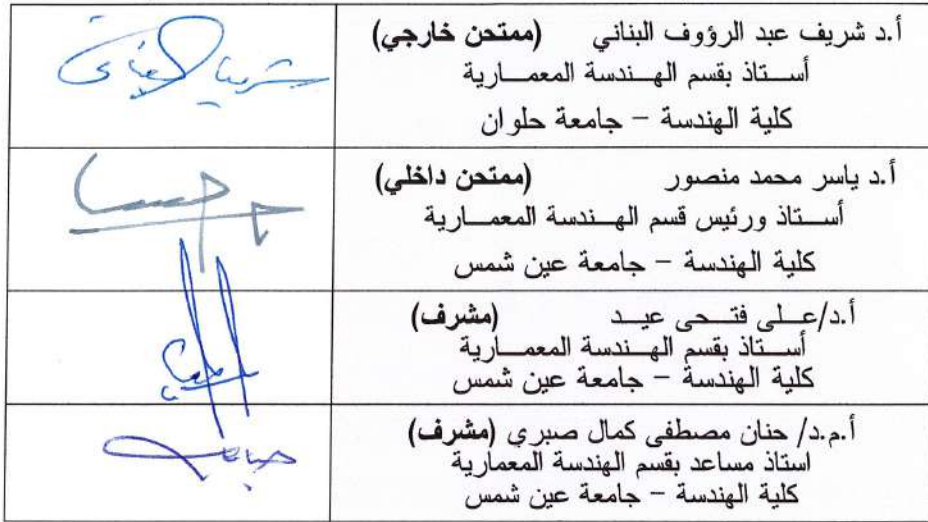 أ.د شريف عبد الرؤوف البناني (ممتحن خارجي)
أســتاذ بقسم الهــندسة المعمــارية
كلية الهندسة – جامعة حلوان
أ.د ياسر محمد منصور (ممتحن داخلي)
أســتاذ ورئيس قسم الهــندسة المعمــارية
كلية الهندسة – جامعة عين شمس
أ.د/عــلى فتــحى عيــد (مشرف)
أســتاذ بقسم الهــندسة المعمــارية
كلية الهندسة – جامعة عين شمس
أ.م.د/ حنان مصطفى كمال صبري (مشرف)
استاذ مساعد بقسم الهندسة المعمارية
كلية الهندسة – جامعة عين شمس